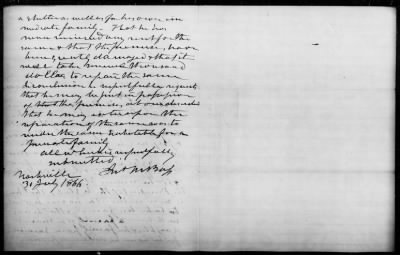 a shelter, as well as for his own im
mediate family. That he has
never received any rent for the
same & that the premises, have
been greatly damaged & that it
will take several thousand
dollars to repair the same
In conclusion he respectfully requests
that he may be put in possession
of that the premises,
that he may enter upon the
reparation of the same so as to
render the same habitable for a
private family
All which is respectfully
submitted
Nashville Jno M Bass
31 July 1865